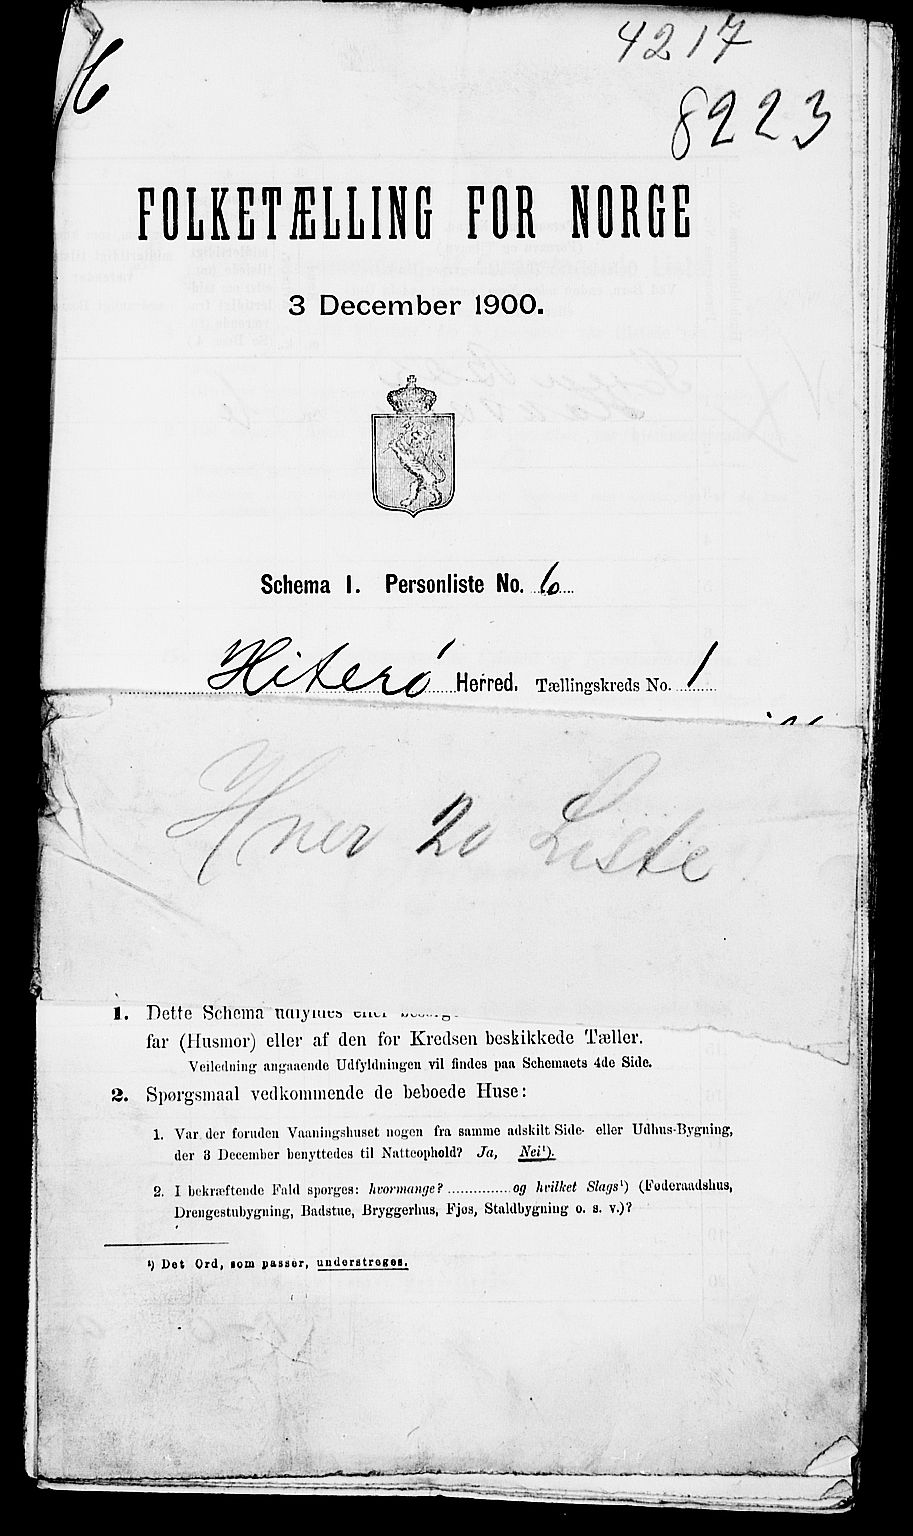 4217
8223
FOLKETÆLLING FOR NORGE
3 December 1900.
Schema 1. Personliste No. 6
Hiterø Herred. Tællingskreds No. 1
Hver 20 Liste
1. Dette Schema udfyldes eller
far (Husmor) eller af den for Kredsen beskikkede Tæller.
Veiledning angaaende Udfyldningen vil findes paa Schemaets 4de Side.
2. Spørgsmaal vedkommende de beboede Huse:
1. Var der foruden Vaaningshuset nogen fra samme adskilt Side- eller Udhus-Bygning,
der 3 December benyttedes til Natteophold? Ja, Nei¹).
2. I bekræftende Fald spørges: hvormange? ............... og hvilket Slags¹) (Føderaadshus,
Drengestubygning, Badstue, Bryggerhus, Fjøs, Staldbygning o. s. v.)?
¹) Det Ord, som passer, understreges.